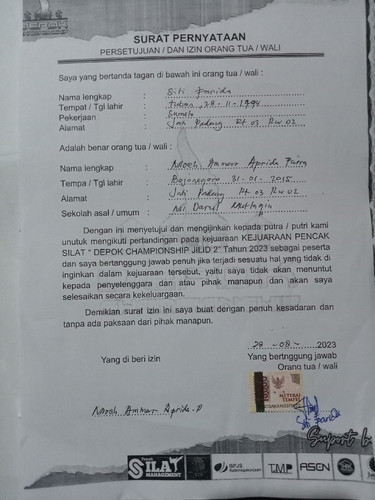 SURAT PERNYATAAN
PERSETUJUAN / DAN IZIN ORANG TUA / WALI
Saya yang bertanda tagan di bawah ini orang tua / wali :
Nama lengkap : Siti Farida
Tempat / Tgl lahir : 28-11-1994
Pekerjaan :
Alamat : Jati Padang Rt 03 Rw 02
Adalah benar orang tua / wali :
Nama lengkap : Ammar Aprida Putra
Tempa / Tgl lahir : Bojonegoro 31-01-2015
Alamat : Jati Padang Rt 03 Rw 02
Sekolah asal / umum : Darul
Dengan ini menyetujui dan mengijinkan kepada putra / putri kami
unutuk mengikuti pertandingan pada kejuaraan KEJUARAAN PENCAK
SILAT " DEPOK CHAMPIONSHIP JILID 2" Tahun 2023 sebagai peserta
dan saya bertanggung jawab penuh jika terjadi sesuatu hal yang tidak di
inginkan dalam kejuaraan tersebut, yaitu saya tidak akan menuntut
kepada penyelenggara dan atau pihak manapun dan akan saya
selesaikan secara kekeluargaan.
Demikian surat izin ini saya buat dengan penuh kesadaran dan
tanpa ada paksaan dari pihak manapun.
28 -08- 2023
Yang di beri izin
Yang bertnggung jawab
Orang tua / wali
METERAI
TEMPEL
Ammar Aprida.P
Siti Farida
Suport b
Pencak
SILAT
MANAGEMENT
BPJS
Ketenagakerjaan
TMP
ASCN